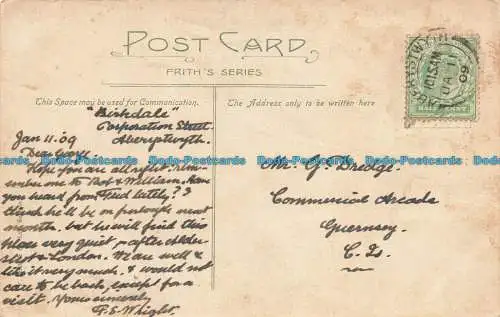 POST CARD
FRITH'S SERIES
This Space may be used for Communication.
The Address only to be written here
"Birkdale"
Corporation Street.
Aberystwyth.
Jan 11. 09
Dear
Hope you are all right, rem-
ember me to Bob & William. Have
you heard from Fred lately? I
think he'll be on furlough next
month. but he will find this
place very quiet, after Alder-
shot & London. We are well &
like it very much, & would not
care to be back, except for a
visit. Yours sincerely
F. S. Wright.
Mr. G. Dredge.
Commercial Arcade
Guernsey.
C. Is.
ABERYSTWYTH
JA 11
09
Dado-Postcards